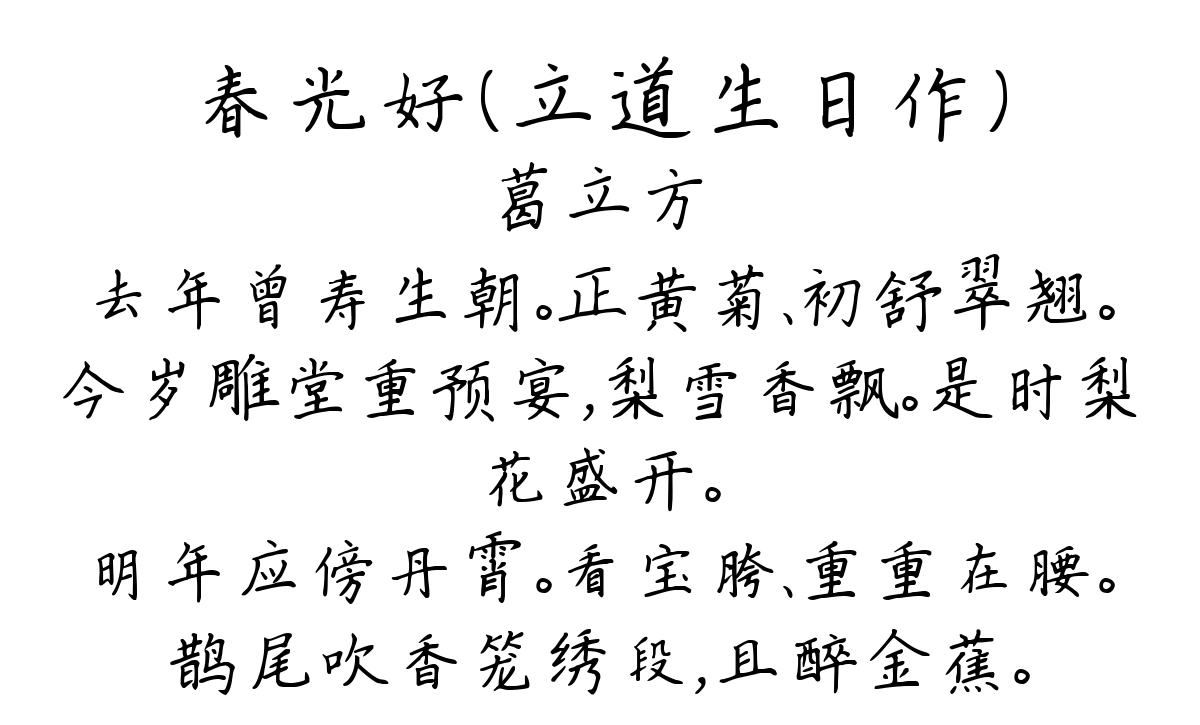 春光好(立道生日作)
葛立方
去年曾寿生朝。正黄菊、初舒翠翘。
今岁雕堂重预宴,梨雪香飘。是时梨
花盛开。
明年应傍丹霄。看宝胯、重重在腰。
鹊尾吹香笼绣段,且醉金蕉。